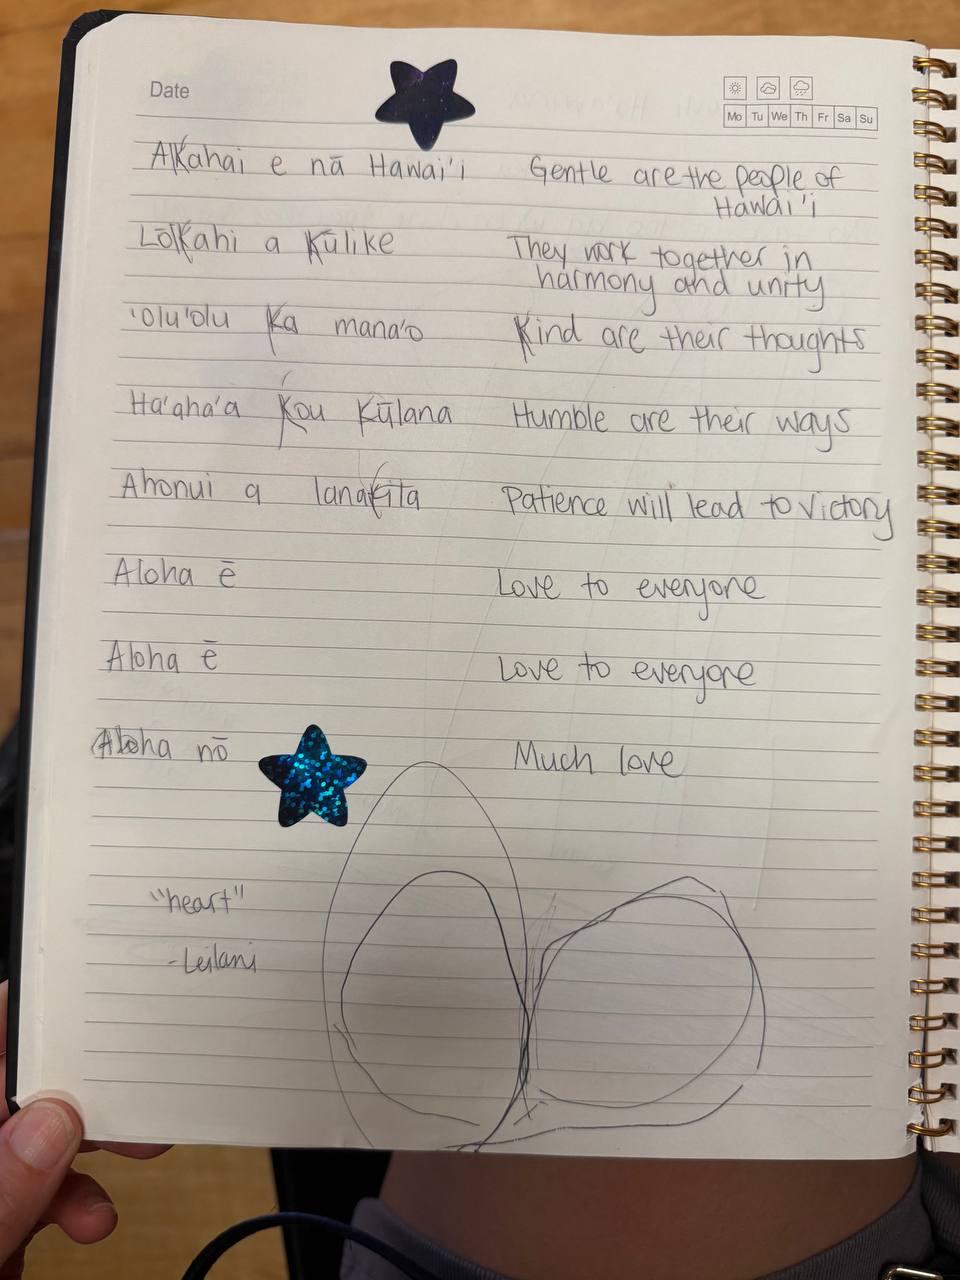 Date
Mo Tu We Th Fr Sa Su
Akahai e nā Hawai'i Gentle are the people of
Hawai'i
Lōkahi a Kūlike They work together in
harmony and unity
'olu'olu Ka mana'o Kind are their thoughts
Ha'aha'a Kou Kūlana Humble are their ways
Ahonui a lanakila Patience will lead to victory
Aloha ē Love to everyone
Aloha ē Love to everyone
Aloha nō Much love
"heart"
-Leilani